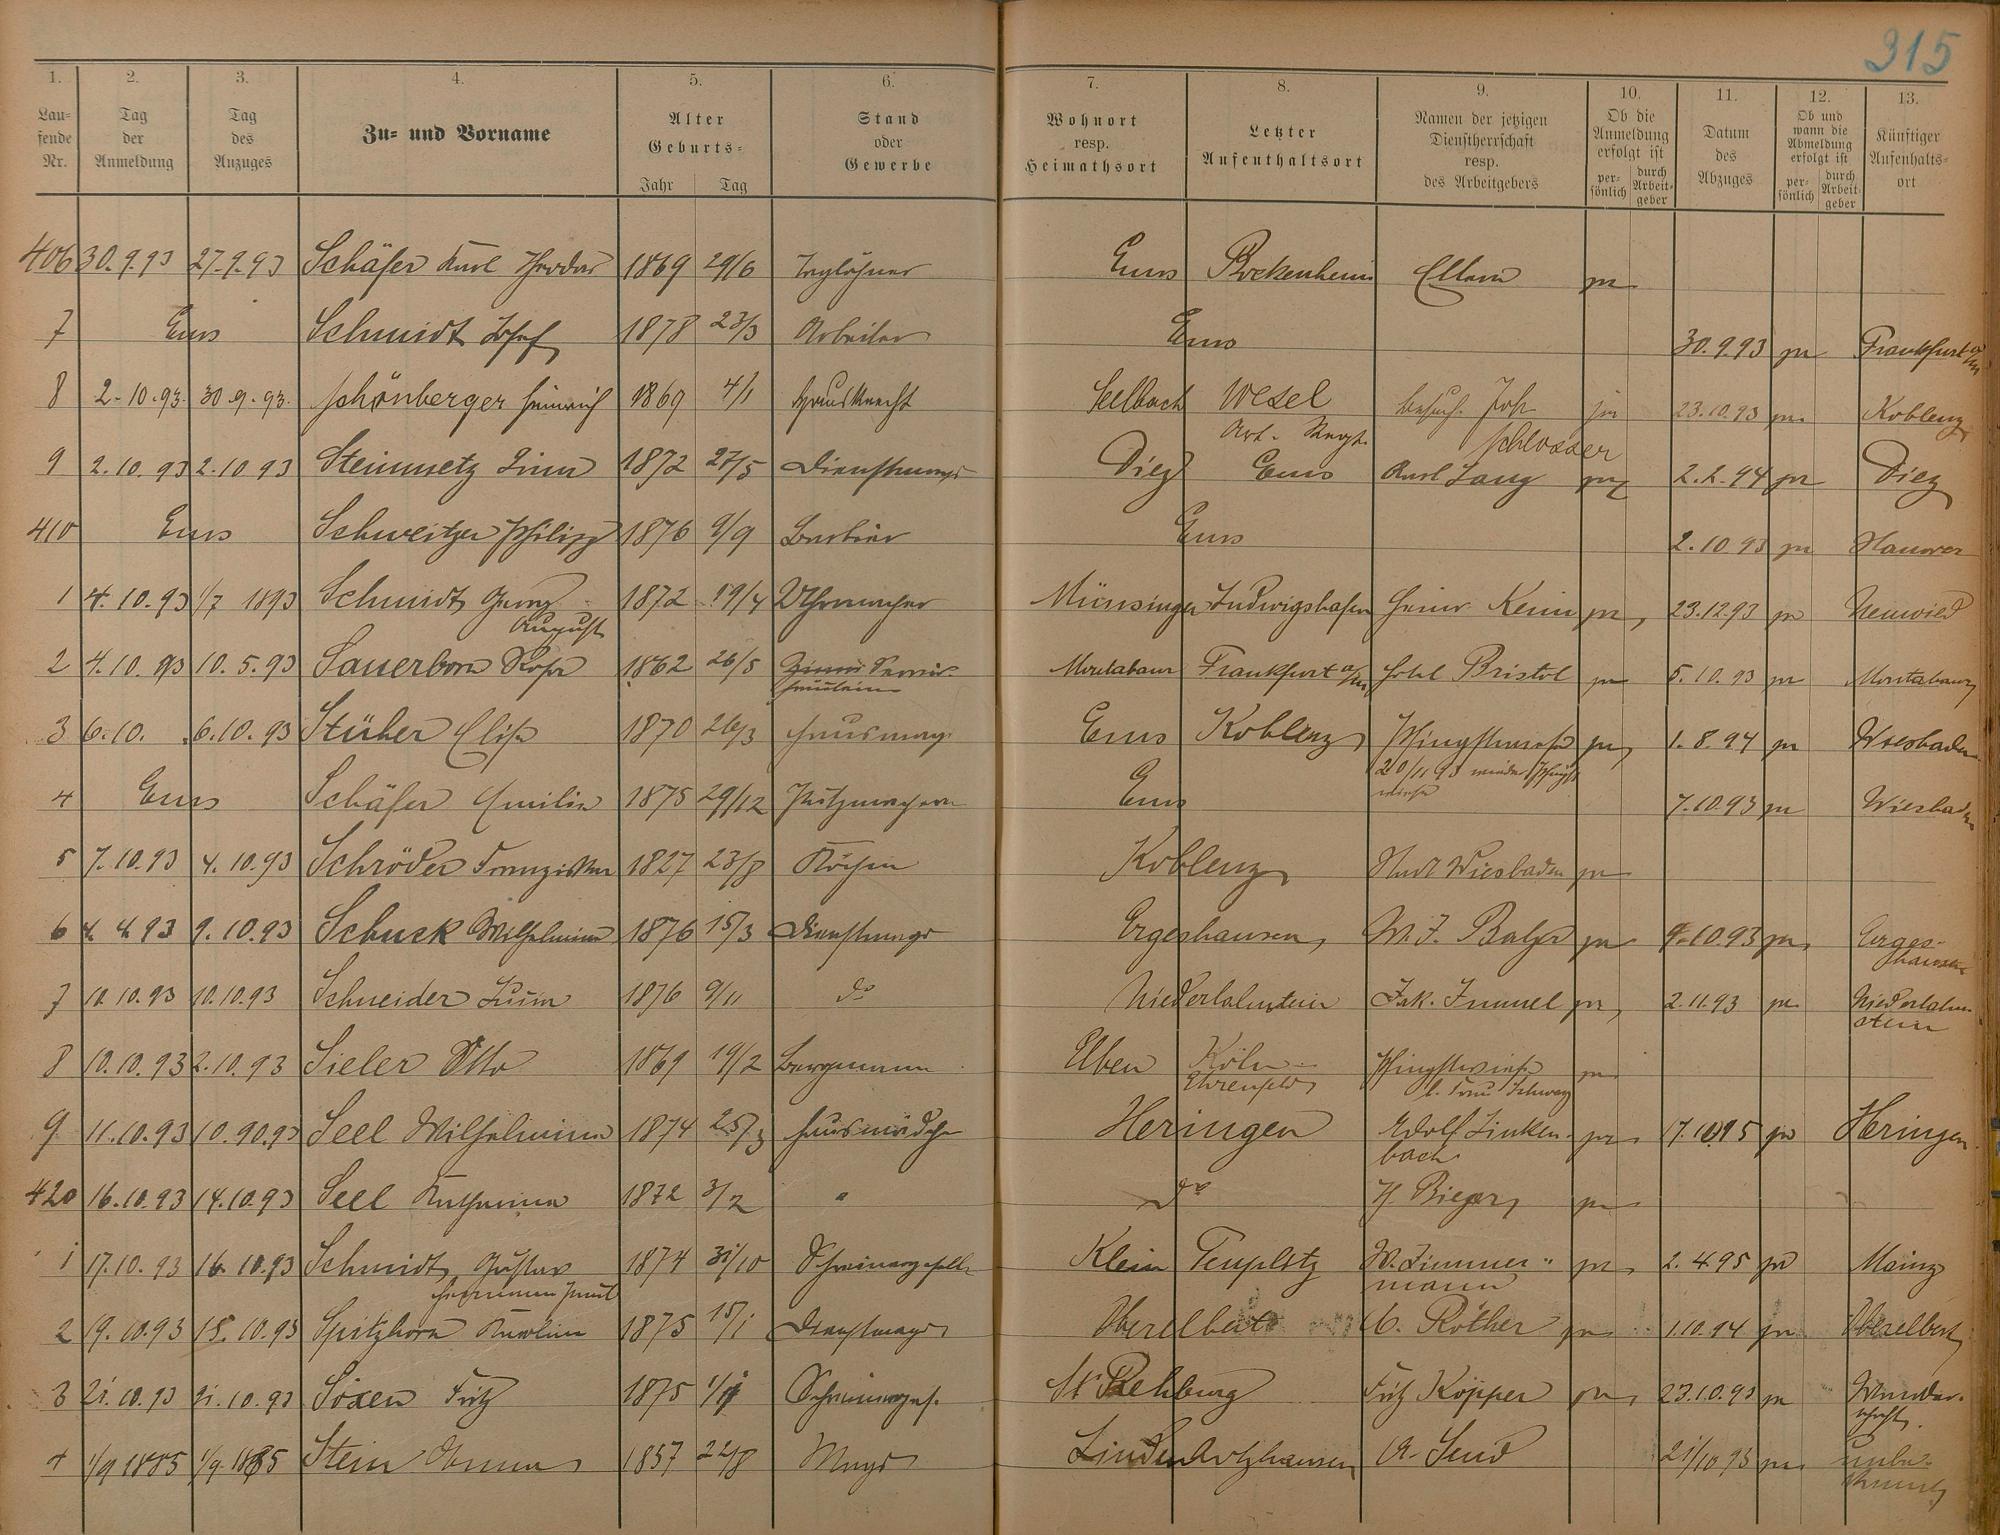 315
1. 2. 3. 4. 5. 6. 7. 8. 9. 10. 11. 12. 13.
Laufende Nr.
Tag der Anmeldung
Tag des Anzuges
Zu- und Vorname
Alter Geburts-
Jahr Tag
Stand oder Gewerbe
Wohnort resp. Heimathsort
Letzter Aufenthaltsort
Namen der jetzigen Dienstherrschaft resp. des Arbeitgebers
Ob die Anmeldung erfolgt ist
persönlich durch Arbeitgeber
Datum des Abzuges
Ob und wann die Abmeldung erfolgt ist
persönlich durch Arbeitgeber
Künftiger Aufenhaltsort
406 30.9.93 27.9.93 Schäfer Karl Theodor 1869 29/6 Taglöhner Ems Bockenheim Eltern
7 Ems Schmidt Josef 1878 23/3 Arbeiter Ems 30.9.93 Frankfurt a/M
8 2.10.93. 30.9.93. Schönberger Heinrich 1869 4/1 Hausknecht Seelbach Wesel Joh. 23.10.93 Koblenz
Schlosser
9 2.10.93 2.10.93 Steinmetz Lina 1872 27/5 Dienstmagd Diez Ems Karl Lang 2.2.94 Diez
410 Ems Schweitzer Philipp 1876 9/9 Barbier Ems 2.10.93
1 4.10.93 1/7 1893 Schmidt Georg 1872 19/4 Uhrmacher Münsingen Ludwigshafen Heinr. 23.12.93 Neuwied
August
2 4.10.93 10.5.93 Sauerborn Rosa 1862 26/5 Montabaur Frankfurt a/M Hotel Bristol 5.10.93 Montabaur
3 6.10. 6.10.93 Stüber Elise 1870 26/3 Hausmagd Ems Koblenz Pfingstwiese 1.8.94 Wiesbaden
20/11 93 wieder Pfingstwiese
4 Ems Schäfer Emilie 1875 29/12 Putzmacherin Ems 7.10.93 Wiesbaden
5 7.10.93 4.10.93 Schröder Franziska 1827 23/8 Köchin Koblenz Stadt Wiesbaden
6 4.4.93 9.10.93 Schuck Wilhelmine 1876 15/3 Dienstmagd Ergeshausen W. J. Balzer 9.10.93 Ergeshausen
7 10.10.93 10.10.93 Schneider Luise 1876 9/11 do Niederlahnstein Jak. Immel 2.11.93 Niederlahnstein
8 10.10.93 2.10.93 Sieler Otto 1869 19/2 Bergmann Elben Köln Pfingstwiese
Ehrenfeld b. Frau
9 11.10.93 10.90.93 Seel Wilhelmine 1874 25/3 Hausmädch Heringen Adolf Linkenbach Heringen
420 16.10.93 14.10.93 Seel Katharina 1872 3/2 " do H. Bieger
1 17.10.93 16.10.93 Schmidt Gustav 1874 31/10 Schreinergeselle Klein W. Zimmermann 2.4.95 Mainz
Hermann Paul
2 19.10.93 15.10.93 Spitzhorn Karoline 1875 15/1 Dienstmagd Oberelbert A. Röther 1.10.94 Oberelbert
3 21.10.93 21.10.93 Soxen Fritz 1875 Schreinerges. Rehburg Fritz Köpper 23.10.93
4 1/9 1885 1/9 1885 Stein Anna 1857 22/8 Magd Lindenholzhausen 21/10 93 unbekannt